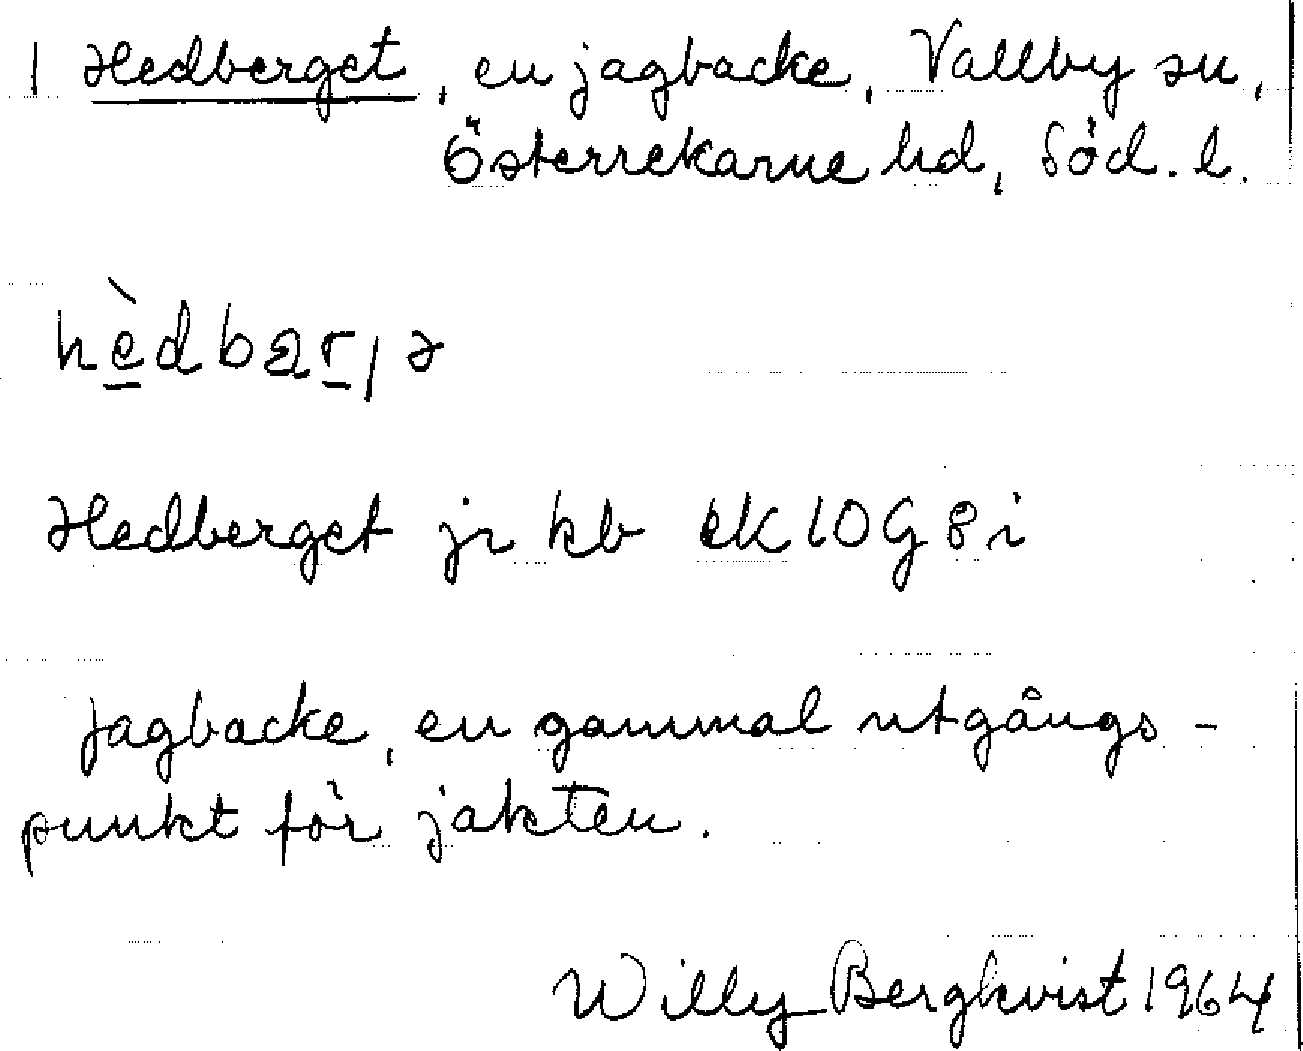 1 Hedberget, en jagbacke, Vallby sn,
Österrekarne hd, Söd. l.
Hedberget jr kb ek 10G 8i
Jagbacke, en gammal utgångs-
punkt för jakten.
Willy Bergkvist 1964